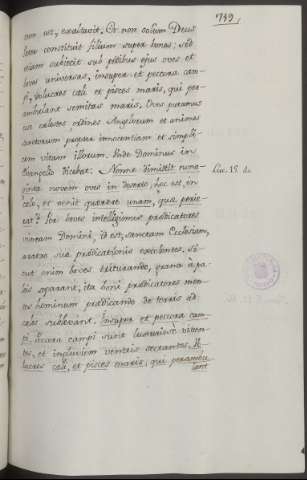 749.
non est, exaltavit. Et non solum Deus
hunc constituit filium super homines; sed
etiam subjecit sub pedibus ejus oves et
boves universas, insuper et peccora cam-
pi, volucres cæli et pisces maris, qui per-
ambulant semitas maris. Oves putamus
eos cælestes ordines Angelorum et animas
sanctorum propter innocentiam et simpli-
cem vitam illorum. Unde Dominus in
Evangelio dicebat: Nonne dimittit nona-
ginta novem oves in deserto, hoc est, in
cælo, et venit quærere unam, quæ perie-
rat? Per boves intelligimus prædicatores
vineam Domini, id est, sanctam Ecclesiam,
aratro suæ prædicationis excolentes. Si-
cut enim boves triturando, grana à pa-
leis separant, ita boni prædicatores men-
tes hominum prædicando de terris ad
cælos sublevant. Insuper et peccora cam-
pi. Pecora campi sunt luxuriosè viven-
tes, et ingluviem ventris sectantes. Vo-
lucres cæli, et pisces maris, qui perambu-
lant
Luc. 15. 4.